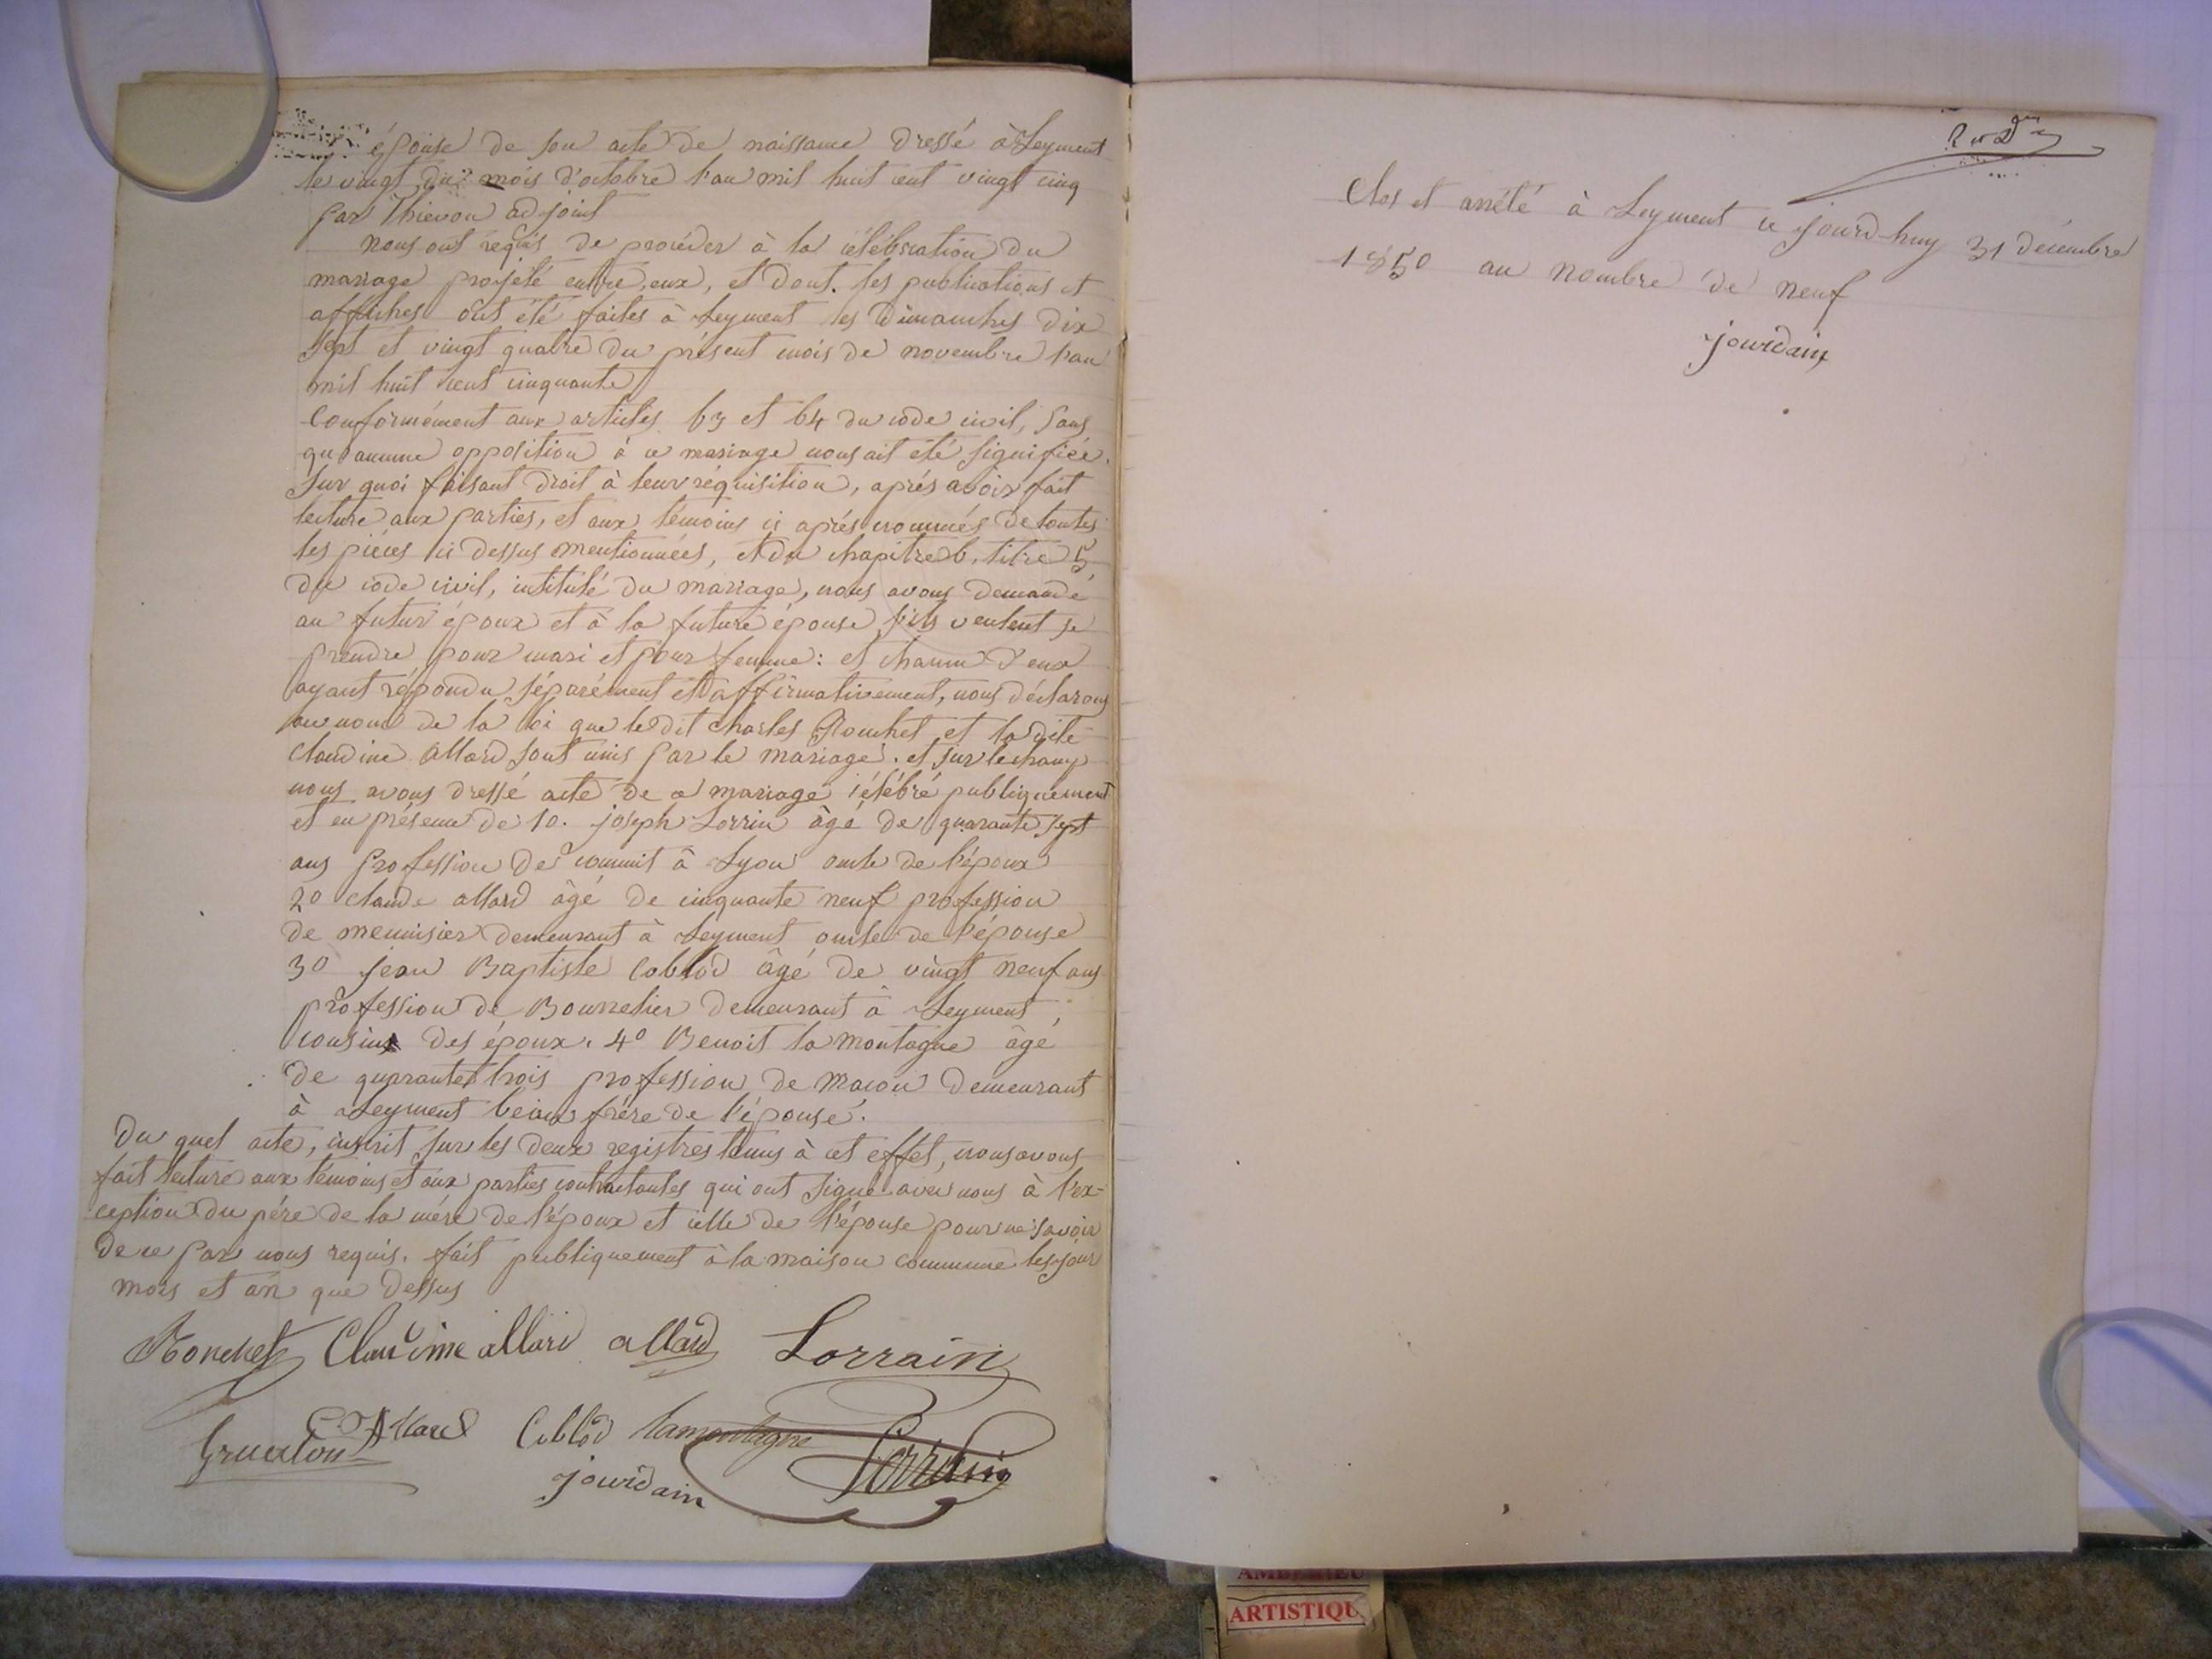 épouse de son acte de naissance dressé à Leyment
le vingt du mois d'octobre l'an mil huit cent vingt cinq
par Thievon adjoint
nous ont requis de procéder à la célébration du
mariage projeté entre eux, et dont les publications et
affiches ont été faites à Leyment les dimanches dix
sept et vingt quatre du présent mois de novembre l'an
mil huit cent cinquante
Conformément aux articles 63 et 64 du code civil, sans
qu'aucune opposition à ce mariage nous ait été signifiée.
Sur quoi faisant droit à leur réquisition, aprés avoir fait
lecture aux parties, et aux témoins ci aprés nommés de toutes
les pièces ci dessus mentionnées, et du chapitre 6, titre 5,
du code civil, intitulé du mariage, nous avons demandé
au futur époux et à la future épouse s'ils veulent se
prendre pour mari et pour femme: et chacun d'eux
ayant répondu séparément et affirmativement, nous déclarons
au nom de la loi que le dit Charles Ronchet et la dite
Claudine Allard sont unis par le mariage. et sur le champ
nous avons dressé acte de ce mariage célébré publiquement
et en présence de 1o. joseph Lorrin âgé de quarante sept
ans profession de commit à Lyon oncle de l'époux
2o Claude allard âgé de cinquante neuf profession
de menuisier demeurant à Leyment oncle de l'épouse
3o Jean Baptiste Coblod âgé de vingt neuf ans
profession de Bourrelier demeurant à Leyment,
cousin des époux. 4o Benoit la montagne âgé
de quarante trois profession de macon demeurant
à Leyment beau frére de l'épouse.
Du quel acte, inscrit sur les deux registres tenus à cet effet, nous avons
fait lecture aux témoins et aux parties contractantes qui ont signé avec nous à l'ex-
ception du pére de la mére de l'époux et celle de l'épouse pour ne savoir
de ce par nous requis. fait publiquement à la maison commune les jour
mois et an que dessus
Ronchet Claudine allard allard Lorrain
C Allard Coblod lamontagne Lorrain
jourdain
Clos et arrêté à Leyment ce jourd huy 31 décembre
1850 au nombre de neuf
jourdain
AMBERIEU
ARTISTIQU